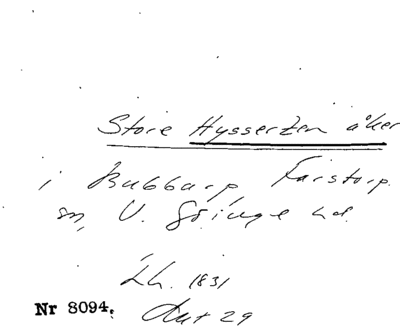 Store Hyssertzen åker
i Bubbarp, Farstorp
sn, V. Göinge hd.
Lh. 1831
Nr 8094. Akt 29